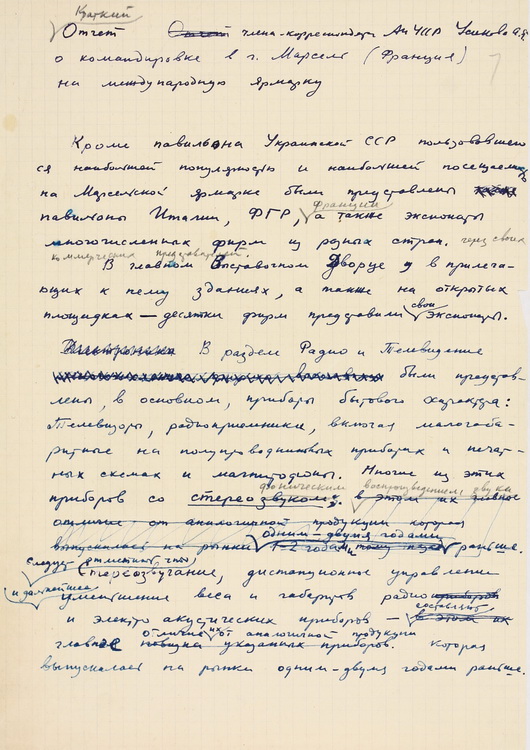 Краткий
Отчет члена-корреспондента Ан УССР Усикова А.Я.
о командировке в г. Марсель (Франция)
на международную ярмарку
Кроме павильона Украинской ССР пользовавшего
ся наибольшей популярностью и наибольшей посещаемостью
на Марсельской ярмарке были представлены
Франции
павильоны Италии, ФГР, а также экспонаты
многочисленных фирм из разных стран. через своих
коммерческих представителей.
В главном Выставочном Дворце и в прилега-
ющих к нему зданиях, а также на открытых
свои
площадках — десятки фирм представили экспонаты.
Электроника В разделе Радио и Телевидение
были представ-
лены, в основном, приборы бытового характера:
Телевизоры, радиоприемники, включая малогаба-
ритные на полупроводниковых приборах и печат-
ных схемах и магнитофоны. Многие из этих
фоническим воспроизведением звука
приборов со стереозвуком; в этом их главное
отличие от аналогичной продукции которая
одним-двумя годами
выпускалась на рынки 1-2 годами, раньше.
Следует отметить, что
стереозвучание, дистанционное управление
и дальнейшее
уменьшение веса и габаритов радио приборов
составляет
и электро акустических приборов — в этом их
отличие их от аналогичной продукции
главное новизна указанных приборов. которая
выпускалась на рынки одним-двумя годами раньше.